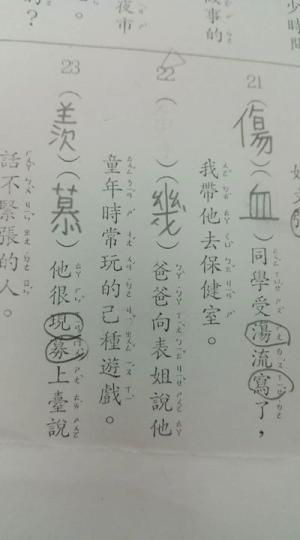 少時間
做事的
夜市
的？
21（傷）（血）同學受湯流寫了，
我帶他去保健室。
22（ ）（幾）爸爸向表姐說他
童年時常玩的己種遊戲。
23（羨）（慕）他很現募上臺說
話不緊張的人。